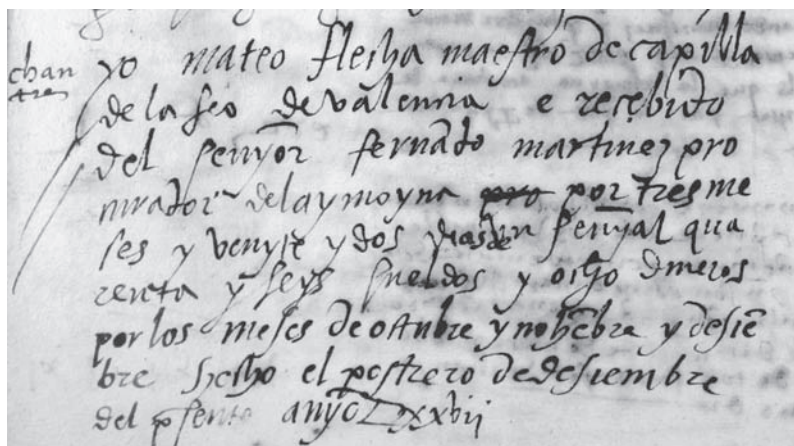 chan
tre
yo mateo flecha maestro de capilla
de la seo de valencia e recebido
del senyor fernãdo martinez pro
curador de la ymoyna pro por tres me
ses y veynte y dos dias senyal qua
renta y seys sueldos y ocho dineros
por los meses de octubre y nobẽbre y desiẽ
bre hecho el postrero de desiembre
del psente anyo xxvii